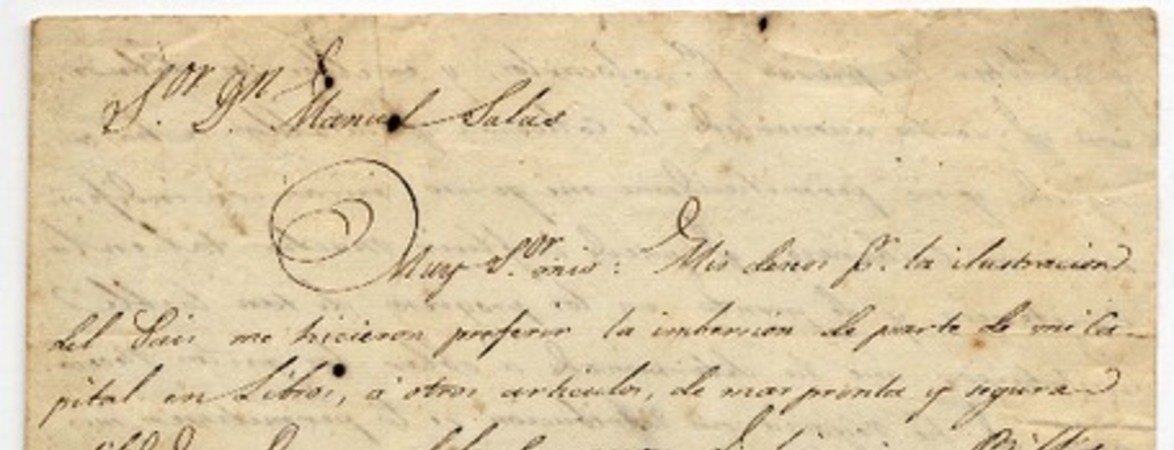 S.or D.n Manuel Salas
Muy S.or mio: Mis deseos p.r la ilustracion
del Pais me hicieron preferir la imbersion de parte de mi Ca-
pital en Libros, á otros articulos, de mas pronta y segura